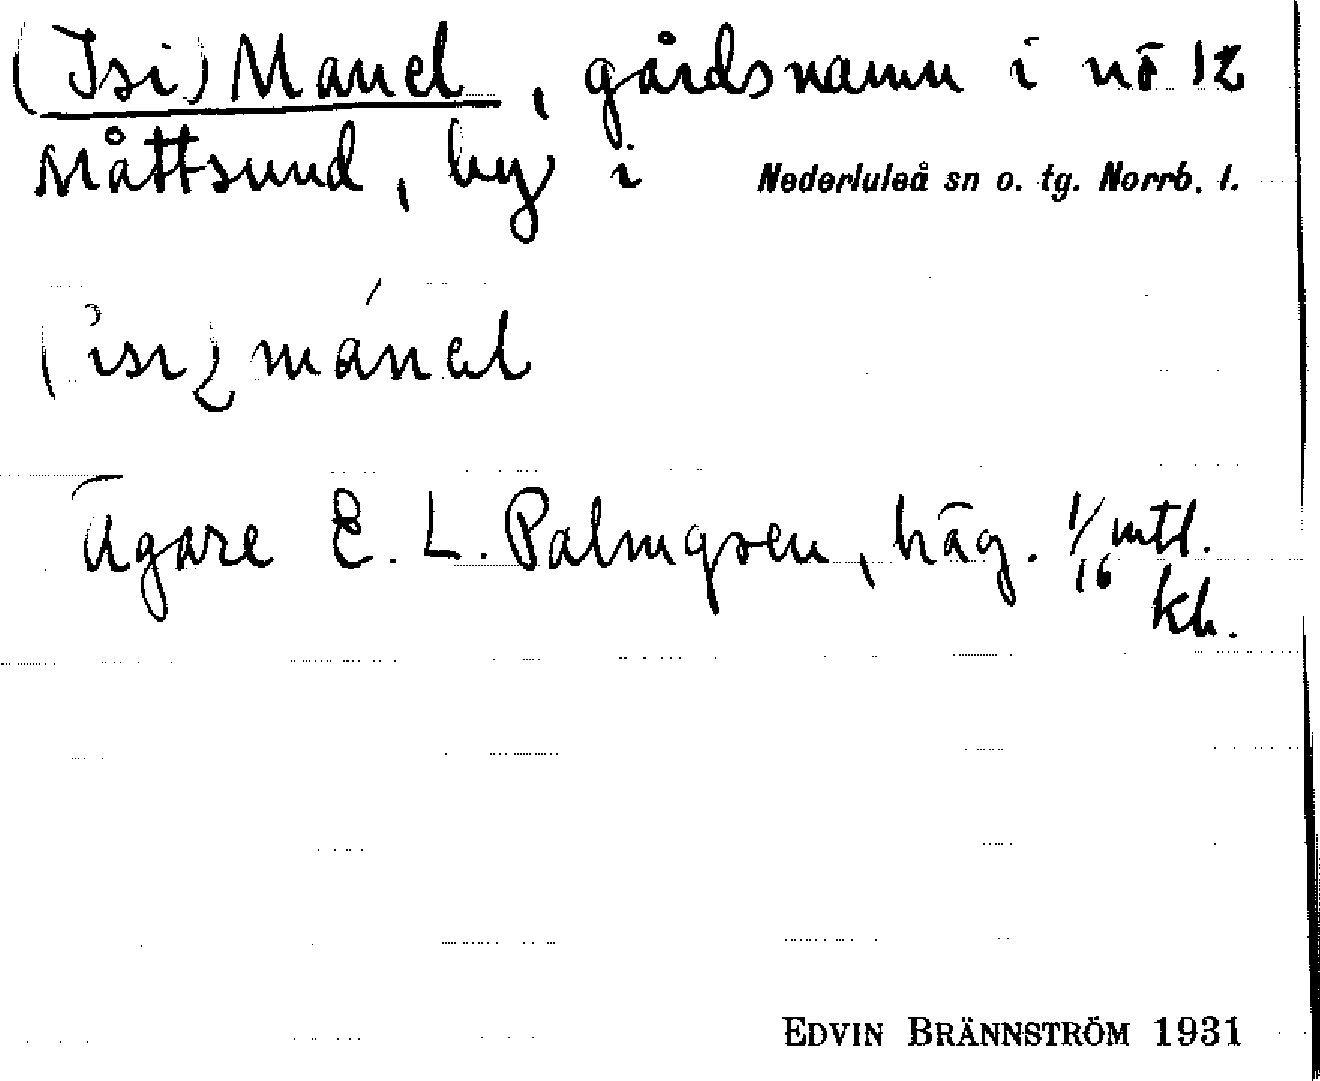 (Isi) Manel, gårdsnamn i nö 12
Måttsund, by i Nederluleå sn o. tg. Norrb. l.
(isi) mánəl
Ägare E. L. Palmqren, häg. 1/16 mtl.
kh.
EDVIN BRÄNNSTRÖM 1931